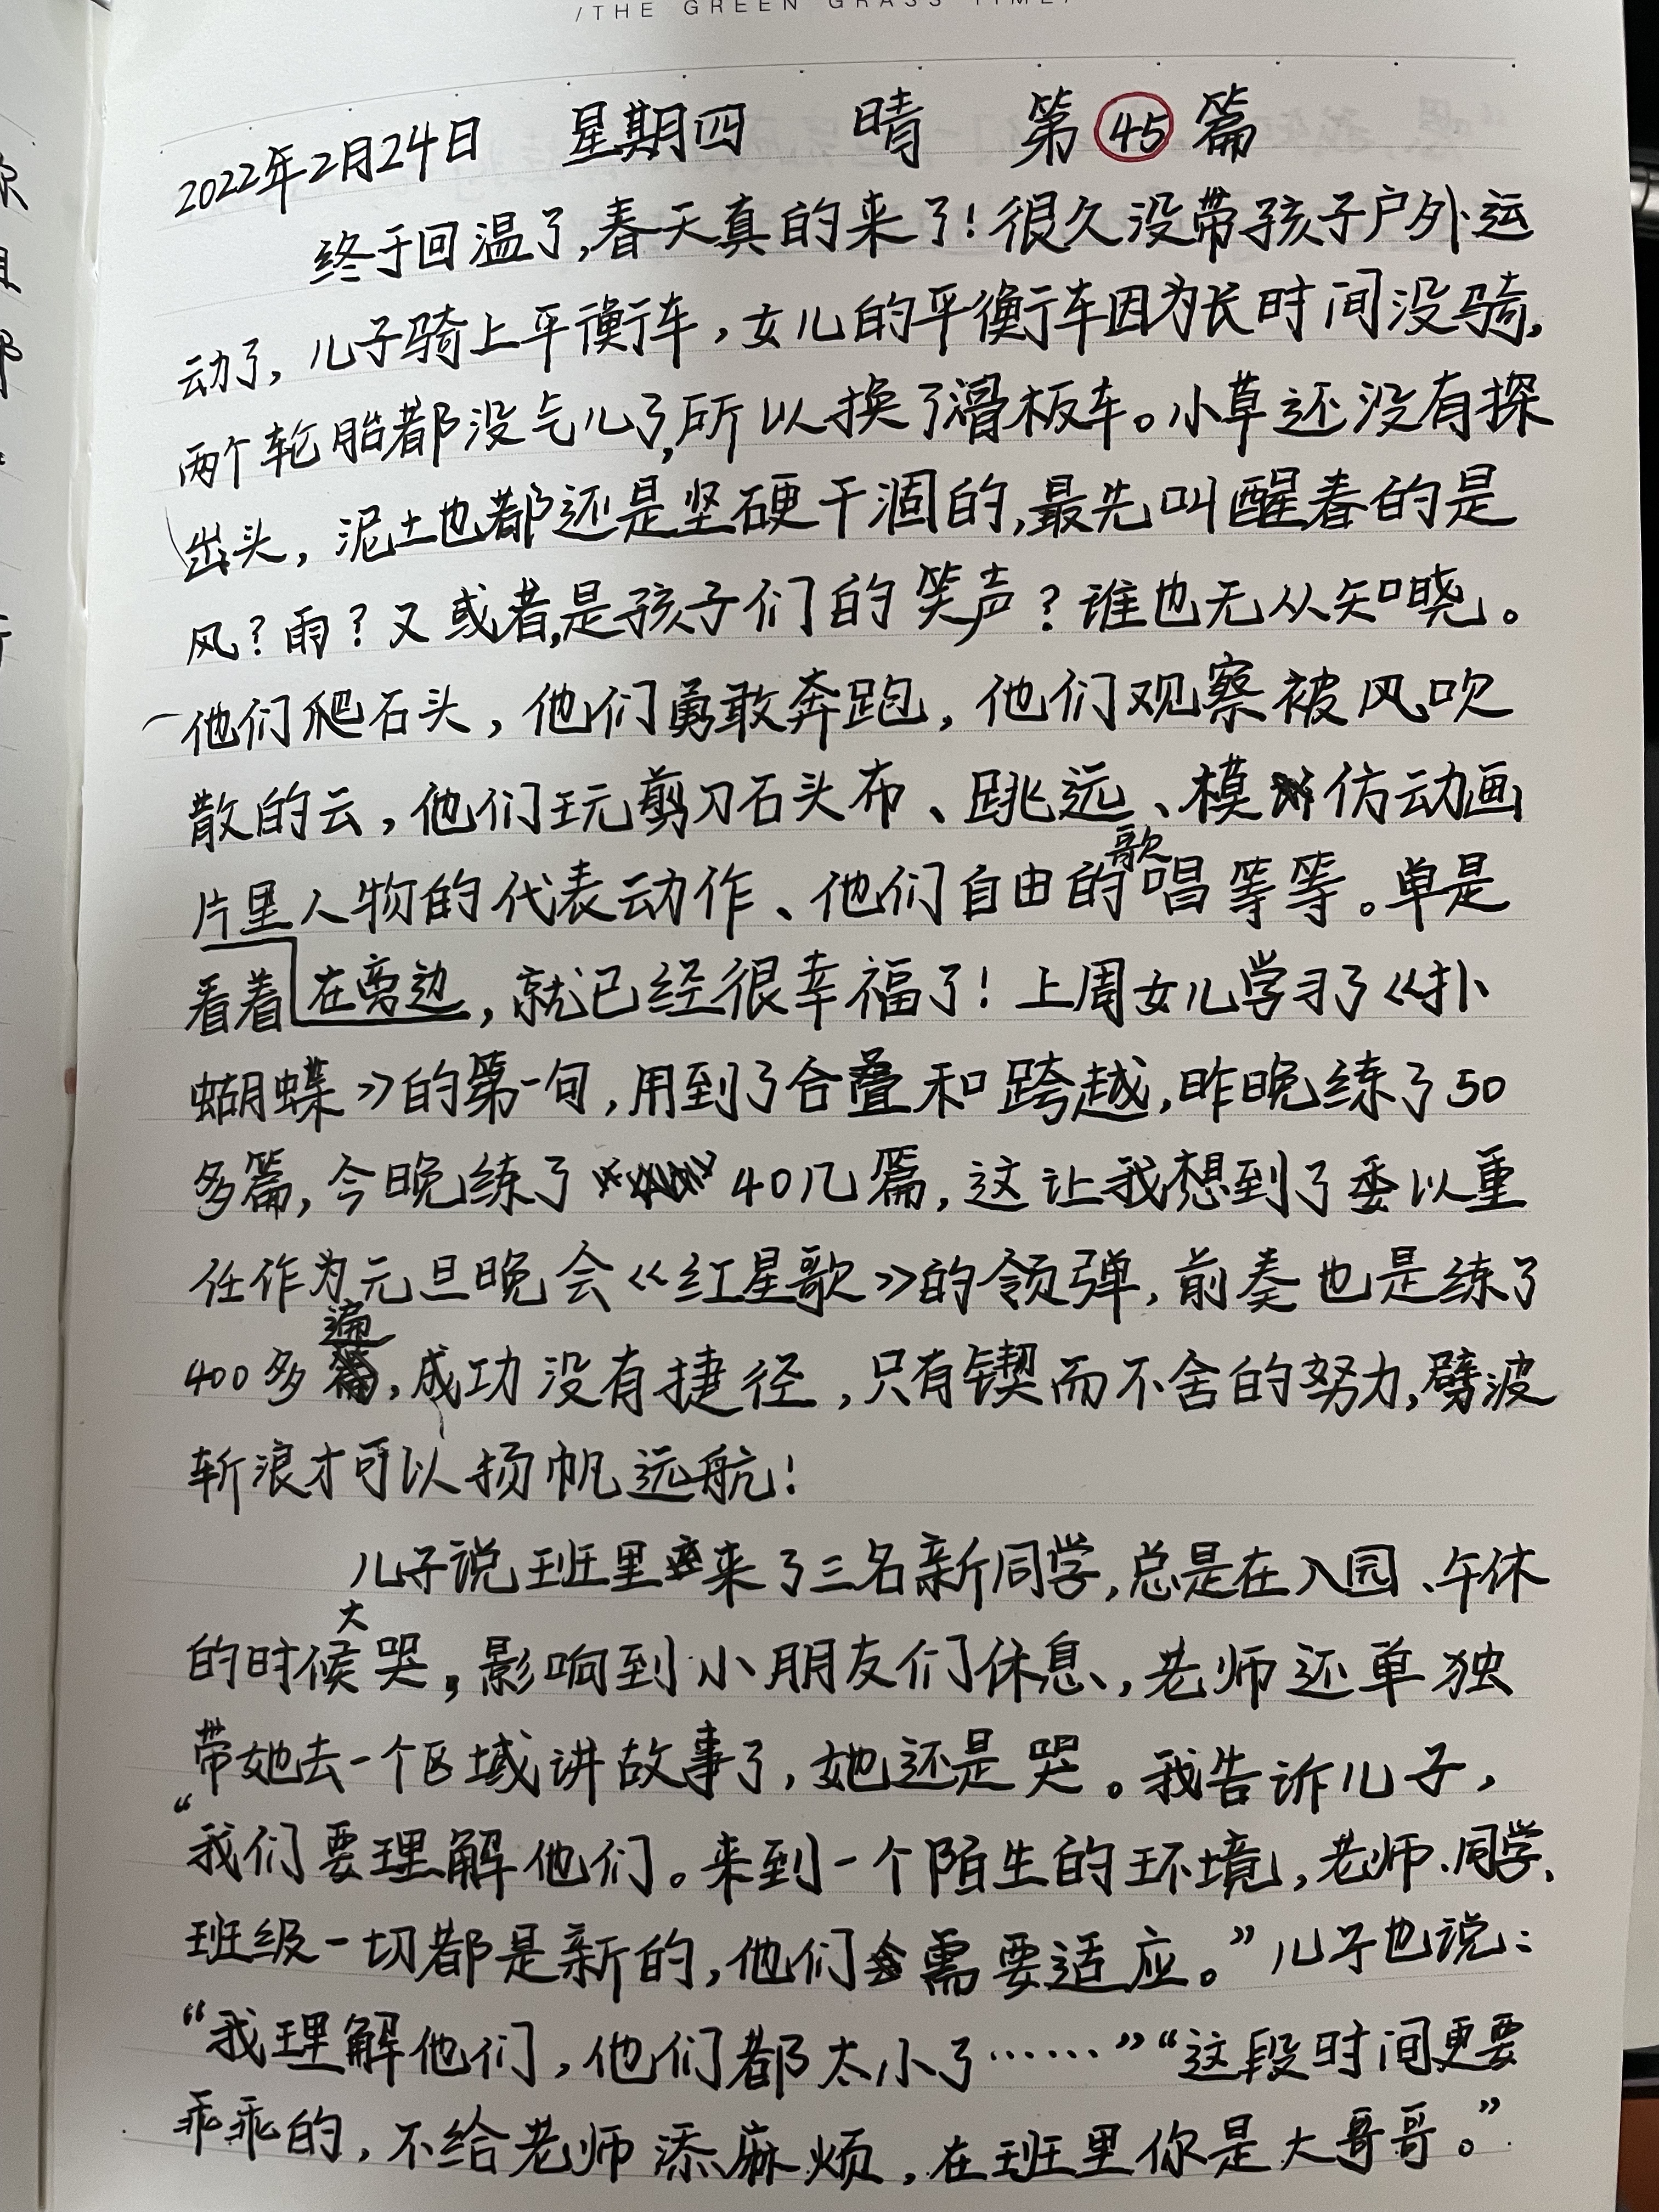 /THE GREEN GRASS TIME/
2022年2月24日 星期四 晴 第45篇
终于回温了,春天真的来了!很久没带孩子户外运
动了,儿子骑上平衡车,女儿的平衡车因为长时间没骑,
两个轮胎都没气儿了,所以换了滑板车。小草还没有探
出头,泥土也都还是坚硬干涸的,最先叫醒春的是
风?雨?又或者,是孩子们的笑声?谁也无从知晓。
他们爬石头,他们勇敢奔跑,他们观察被风吹
散的云,他们玩剪刀石头布、跳远、模仿动画
片里人物的代表动作、他们自由的歌唱等等。单是
看着在旁边,就已经很幸福了!上周女儿学习了《扑
蝴蝶》的第一句,用到了合叠和跨越,昨晚练了50
多篇,今晚练了40几篇,这让我想到了委以重
任作为元旦晚会《红星歌》的领弹,前奏也是练了
400多遍,成功没有捷径,只有锲而不舍的努力,劈波
斩浪才可以扬帆远航!
儿子说班里来了三名新同学,总是在入园、午休
的时候大哭,影响到小朋友们休息,老师还单独
带她去一个区域讲故事了,她还是哭。我告诉儿子,
“我们要理解他们。来到一个陌生的环境,老师、同学、
班级一切都是新的,他们需要适应。”儿子也说:
“我理解他们,他们都太小了……”“这段时间更要
乖乖的,不给老师添麻烦,在班里你是大哥哥。”